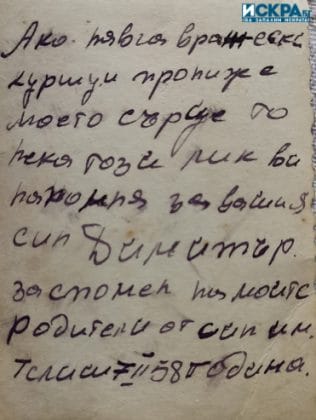 ИСКРА.БГ
ДА ЗАПАЛИМ ИСКРАТА!
Ако нявга вражески
куршум прониже
моето сърце то
нека този лик ви
напомня за вашия
син Димитър.
за спомен на моите
родители от син им.
Телиш 7 II 58 година.